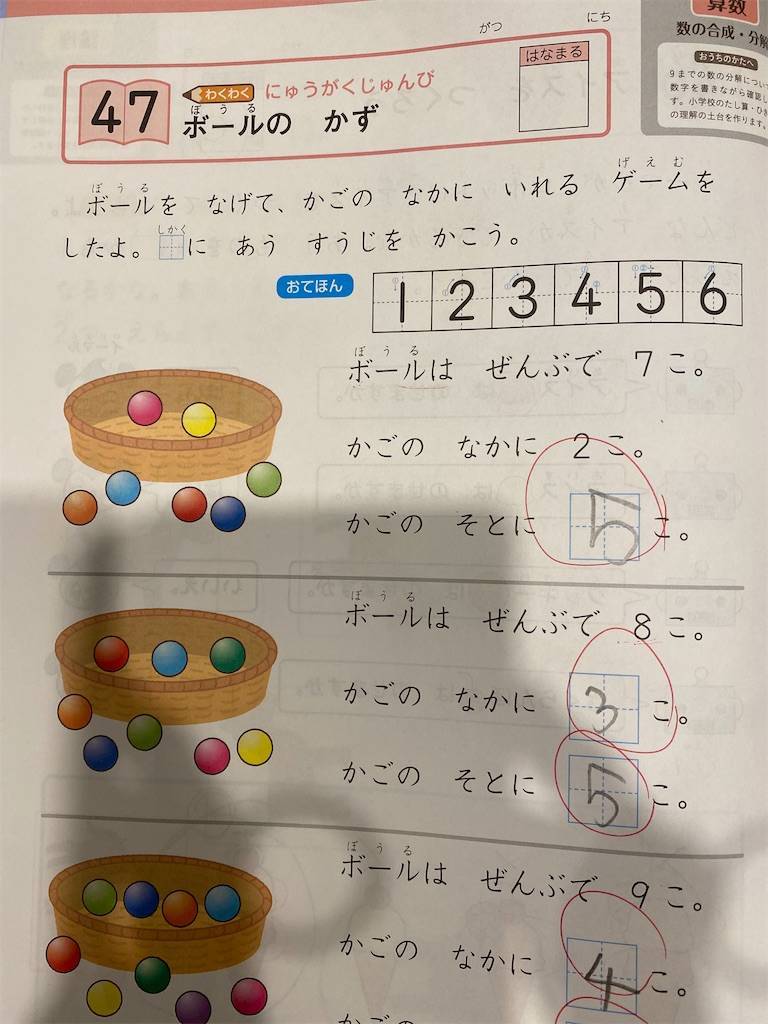 がつ にち
算数
数の合成・分解
おうちのかたへ
9までの数の分解につい
数字を書きながら確認し
す。小学校のたし算・ひき
の理解の土台を作ります。
47
わくわく にゅうがくじゅんび
はなまる
ぼうる
ボールの かず
ぼうる げえむ
ボールを なげて、かごの なかに いれる ゲームを
しかく
したよ。 に あう すうじを かこう。
おてほん 1 2 3 4 5 6
ぼうる
ボールは ぜんぶで 7こ。
かごの なかに 2こ。
かごの そとに 5 こ。
ぼうる
ボールは ぜんぶで 8こ。
かごの なかに 3 こ。
かごの そとに 5 こ。
ぼうる
ボールは ぜんぶで 9こ。
かごの なかに 4 こ。
かごの